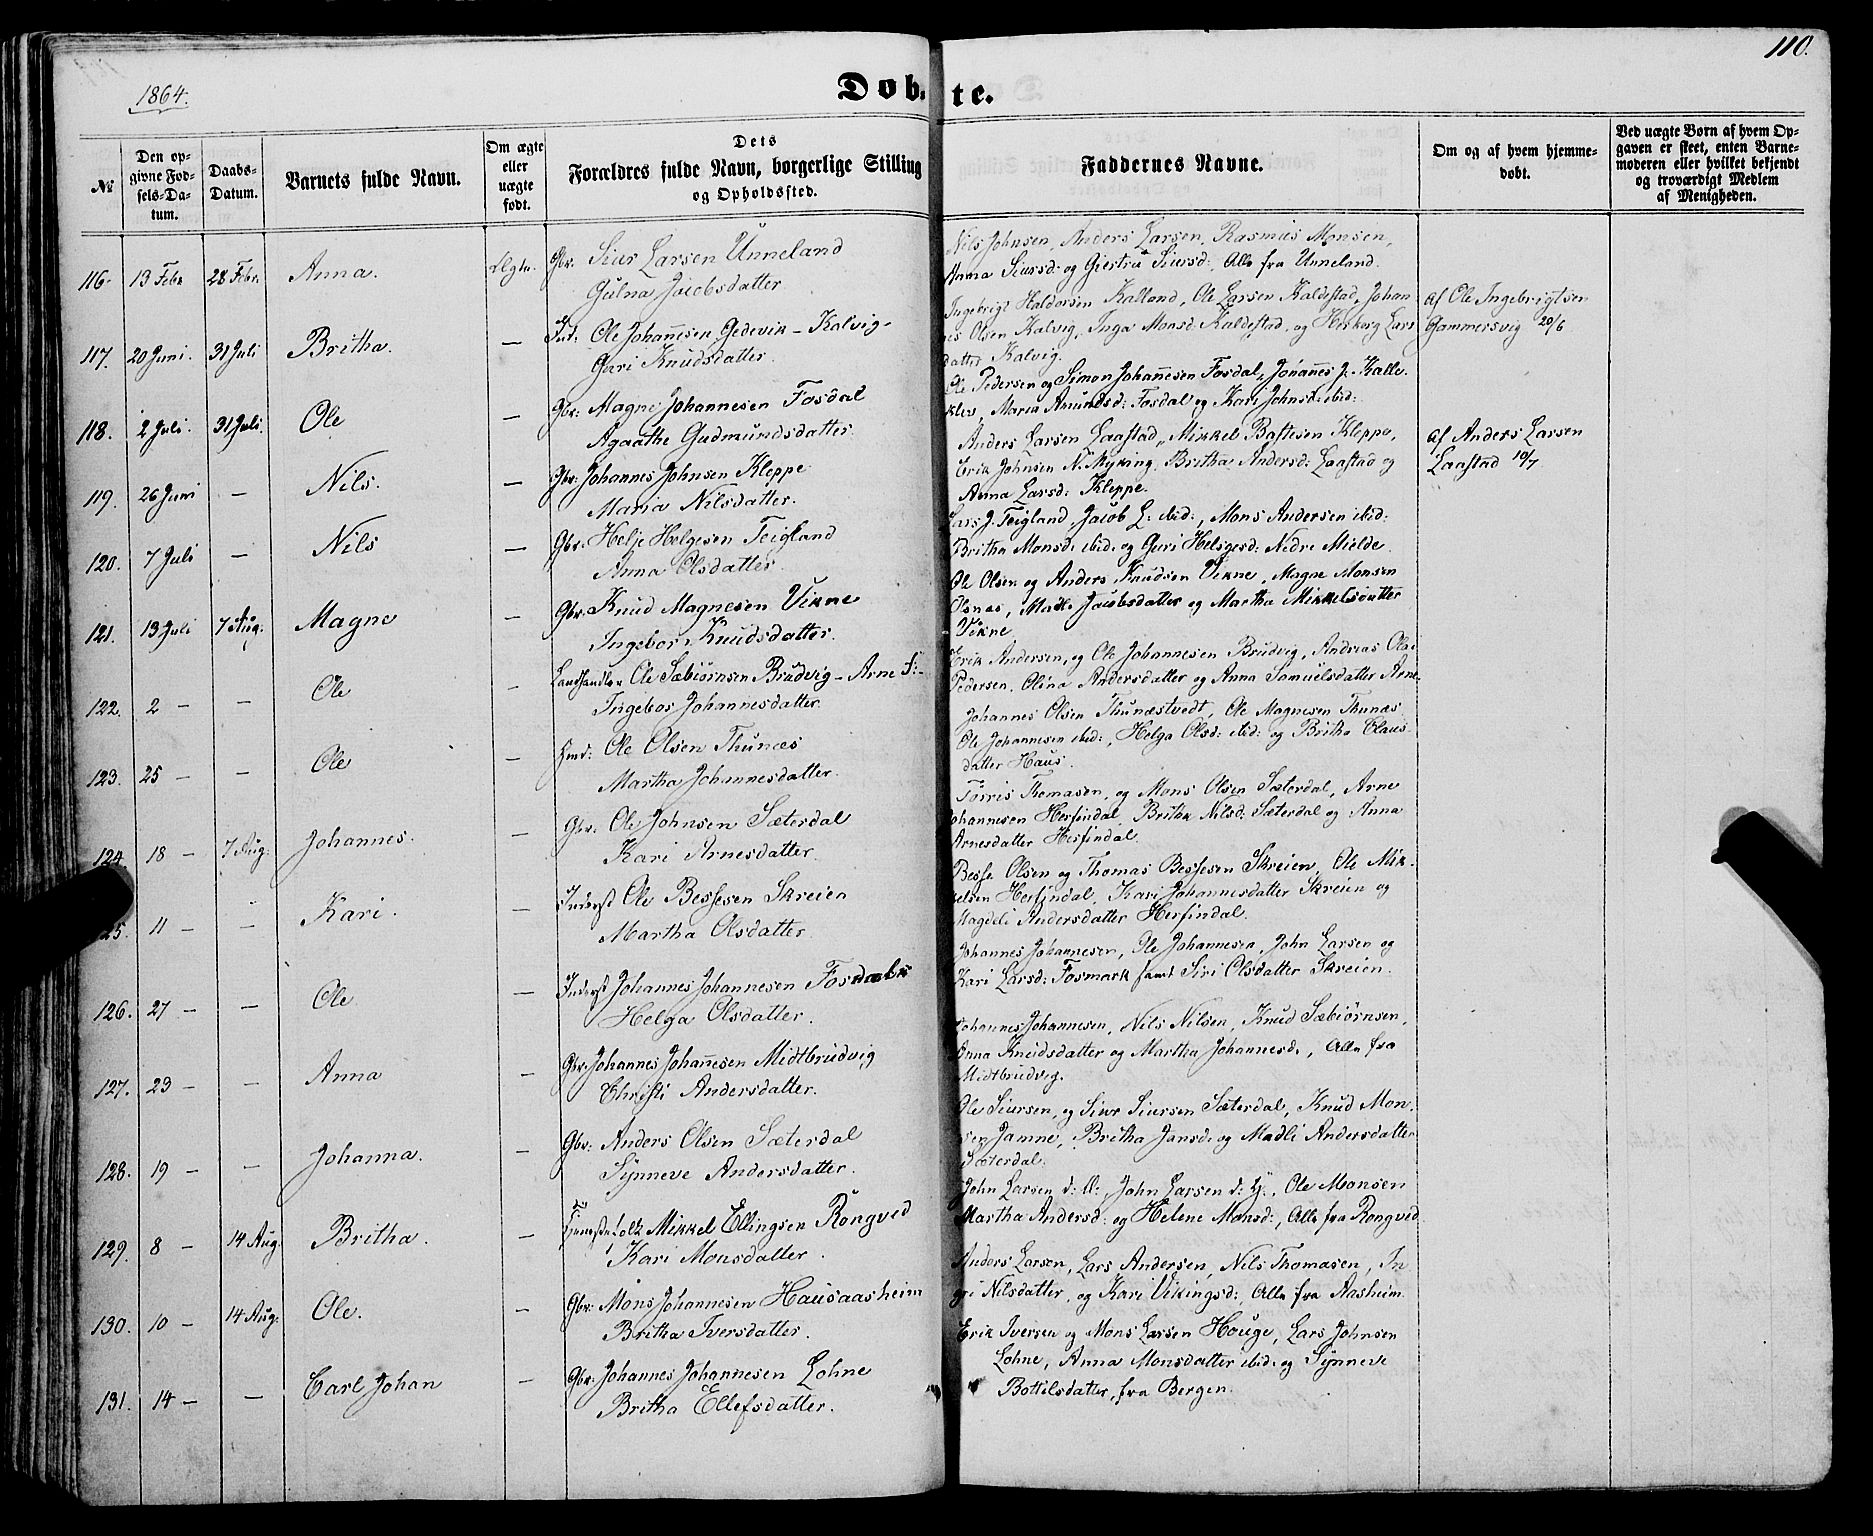 110.
1864.
Døbte.
№
Den opgivne Fødsels-Datum.
Daabs-Datum.
Barnets fulde Navn.
Om ægte eller uægte født.
Dets Forældres fulde Navn, borgerlige Stilling og Opholdssted.
Faddernes Navne.
Om og af hvem hjemmedøbt.
Ved uægte Børn af hvem Opgaven er skeet, enten Barnemoderen eller hvilket bekjendt og troværdigt Medlem af Menigheden.
116. 13 Febr 28 Febr. Anna. Ægte. Gbr. Siur Larsen Unneland
Gulna Jacobsdatter
Nils Johnsen, Anders Larsen, Rasmus Monsen,
Anna Siursd: og Giertru Siursd:, Alle fra Unneland.
117. 20 Juni. 31 Juli Britha. — Ind: Ole Johannesen Gedevik - Kalvig -
Guri Knudsdatter.
Ingebrigt Haldorsen Kalland, Ole Larsen Kaldestad, Johan
nes Olsen Kalvig, Inga Monsd: Kaldestad, og Herborg Lars
datter Kalvig.
Af Ole Ingebrigtsen
Gammersvig 20/6
118. 2 Juli. 31 Juli. Ole — Gbr: Magne Johannesen Fosdal
Agaathe Gudmundsdatter
Ole Pedersen og Simon Johannesen Fosdal, Johannes J: Kalle
klev, Maria Amundsd: Fosdal og Kari Johnsd: ibid:
119. 26 Juni — Nils. — Gbr: Johannes Johnsen Kleppe
Maria Nilsdatter.
Anders Larsen Laastad, Mikkel Baftesen Kleppe,
Erik Johnsen N: Myking, Britha Andersd: Laastad og
Anna Larsd: Kleppe.
Af Anders Larsen
Laastad 10/7.
120. 7 Juli — Nils — Gbr. Helje Helgesen Teigland
Anna Olsdatter
Lars J. Teigland, Jacob L: ibid:, Mons Andersen ibid:
Britha Monsd: ibid: og Guri Helgesd: Nedre Mielde
121. 13 Juli 7 Aug: Magne — Gbr. Knud Magnesen Vikne
Ingebor Knudsdatter.
Ole Olsen og Anders Knudsen Vikne, Magne Monsen
Osnes, Madli Jacobsdatter og Martha Mikkelsdatter
Vikne
122. 2 — — Ole — Landhandler Ole Sæbiørnsen Brudvig - Arne F: -
Ingebor Johannesdatter
Erik Andersen, og Ole Johannesen Brudvig, Andreas Olai
Pedersen, Olina Andersdatter og Anna Samuelsdatter Arne
123. 25 — — Ole — Hmd: Ole Olsen Thunæs
Martha Johannesdatter.
Johannes Olsen Thunæstvedt, Ole Magnesen Thunæs
Ole Johannesen ibid:, Helga Olsd: ibid: og Britha Claus
datter Haus.
124. 18 — 7 Aug: Johannes. — Gbr: Ole Johnsen Sæterdal
Kari Arnesdatter.
Torris Thomasen, og Mons Olsen Sæterdal, Arne
Johannesen Herfindal, Britha Nilsd: Sæterdal og Anna
Arnesdatter Herfindal.
125. 11 — — Kari. — Inderst Ole Bessesen Skreien
Martha Olsdatter
Besse Olsen og Thomas Bessesen Skreien, Ole Mik
kelsen Herfindal, Kari Johannesdatter Skreien og
Magdeli Andersdatter Herfindal.
126. 27 — — Ole. — Inderst Johannes Johannesen
Helga Olsdatter.
Johannes Johannesen, Ole Johannesen, John Larsen og
Kari Larsd: Fosmark samt Siri Olsdatter Skreien.
127. 23 — — Anna — Gbr. Johannes Johannesen Midtbrudvig
Christi Andersdatter.
Johannes Johannesen, Nils Nilsen, Knud Sæbiørnsen,
Anna Knudsdatter og Martha Johannesd:, Alle fra
Midtbrudvig.
128. 19 — — Johanna. — Gbr: Anders Olsen Sæterdal
Synneve Andersdatter.
Ole Siursen, og Siur Siursen Sæterdal, Knud Mon
sen Jamne, Britha Jansd: og Madli Andersdatter
Sæterdal.
129. 8 — 14 Aug: Britha. — Tjenestefolk Mikkel Ellingsen Rongved
Kari Monsdatter.
John Larsen d: Æ:, John Larsen d: Y:, Ole Monsen
Martha Andersd: og Helene Monsd:, Alle fra Rongved
130. 10 — 14 Aug: Ole. — Gbr: Mons Johannesen Hausaasheim
Britha Iversdatter.
Anders Larsen, Lars Andersen, Nils Thomasen, In
gri Nilsdatter, og Kari Vikingsd:, Alle fra Aasheim.
131. 14 — — Carl Johan — Gbr: Johannes Johannesen Lohne
Britha Ellefsdatter.
Erik Iversen og Mons Larsen Houge, Lars Johnsen
Lohne, Anna Monsdatter ibid: og Synneve
Bottilsdatter, fra Bergen.